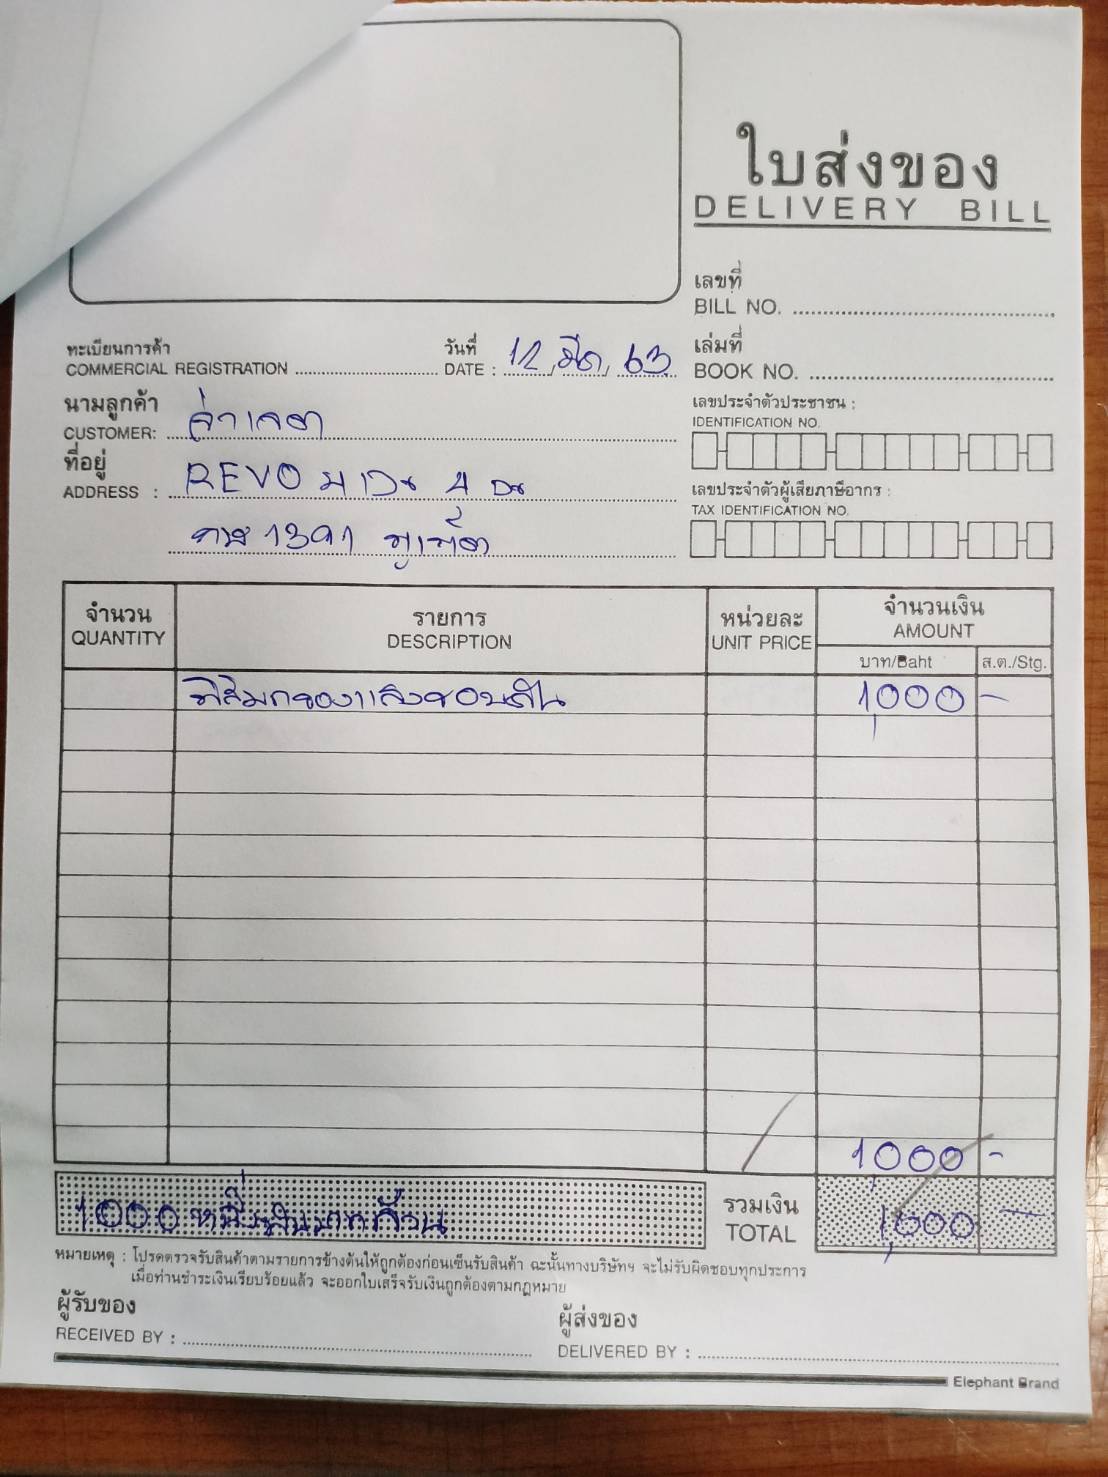 ใบส่งของ
DELIVERY BILL
เลขที่
BILL NO.
ทะเบียนการค้า
COMMERCIAL REGISTRATION
วันที่
DATE : 12, มีค, 63
เล่มที่
BOOK NO.
นามลูกค้า
CUSTOMER:
เลขประจำตัวประชาชน :
IDENTIFICATION NO.
ที่อยู่
ADDRESS : REVO 4
1391 ภูเก็ต
เลขประจำตัวผู้เสียภาษีอากร :
TAX IDENTIFICATION NO.
จำนวน
QUANTITY
รายการ
DESCRIPTION
หน่วยละ
UNIT PRICE
จำนวนเงิน
AMOUNT
บาท/Baht ส.ต./Stg.
1,000 -
1,000 -
1,000 หนึ่งพันบาทถ้วน
รวมเงิน
TOTAL
1,000 -
หมายเหตุ : โปรดตรวจรับสินค้าตามรายการข้างต้นให้ถูกต้องก่อนเซ็นรับสินค้า ฉะนั้นทางบริษัทฯ จะไม่รับผิดชอบทุกประการ
เมื่อท่านชำระเงินเรียบร้อยแล้ว จะออกใบเสร็จรับเงินถูกต้องตามกฎหมาย
ผู้รับของ
RECEIVED BY :
ผู้ส่งของ
DELIVERED BY :
Elephant Brand